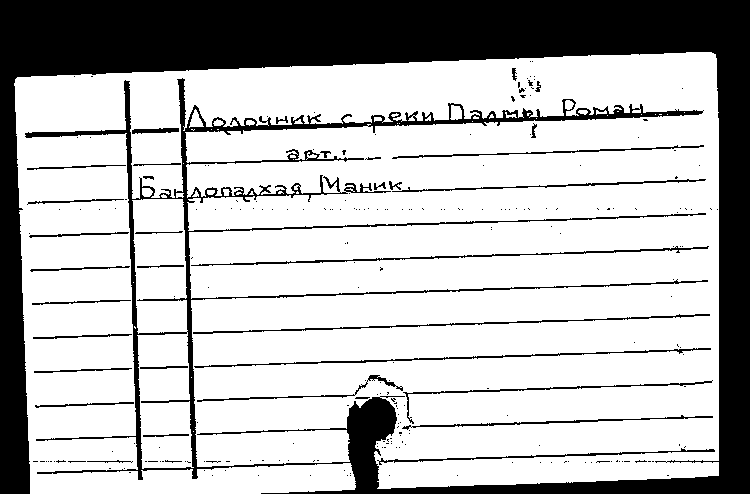 Лодочник с реки Падмы Роман.
авт.:
Бандопадхая, Маник.